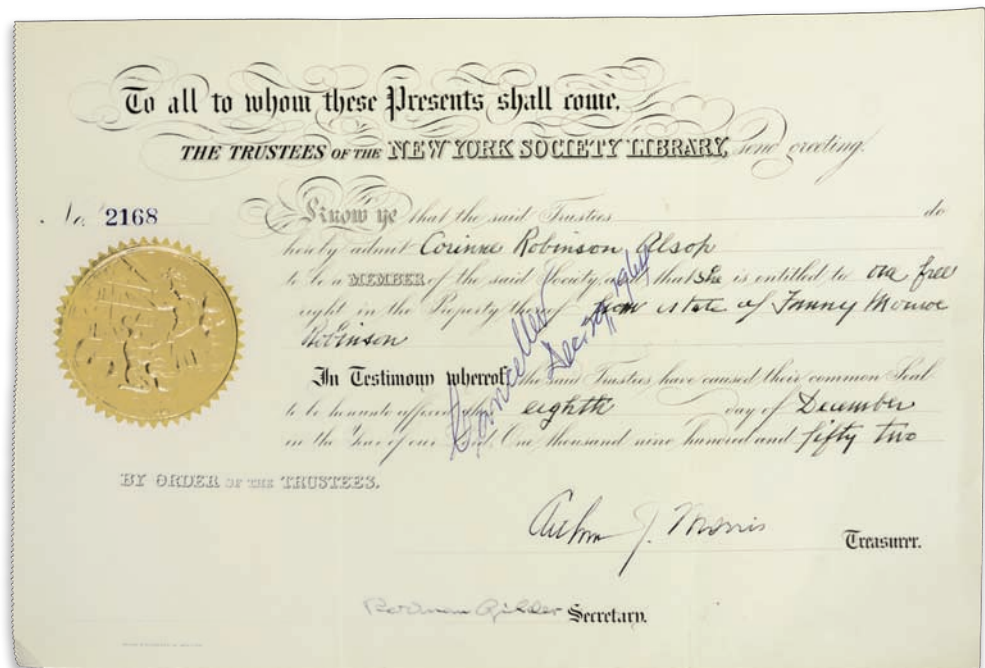 To all to whom these Presents shall come,
THE TRUSTEES OF THE NEW YORK SOCIETY LIBRARY, send greeting.
No. 2168
Know ye that the said Trustees do
hereby admit Corinne Robinson Alsop
to be a MEMBER of the said Society, and that she is entitled to one free
right in the Property thereof from estate of Fanny Monroe
Robinson
Cancelled
In Testimony whereof, the said Trustees have caused their common Seal
to be hereunto affixed, this eighth day of December
in the Year of our Lord, One thousand nine hundred and fifty two
BY ORDER OF THE TRUSTEES.
Arthur J. Morris Treasurer.
Rodman Gilder Secretary.